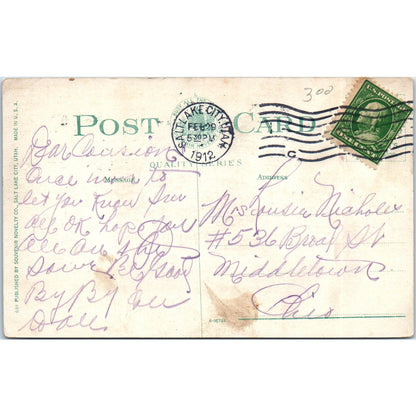 3.00
U.S. POSTAGE
SALT LAKE CITY, UTAH.
FEB 29
5:30 PM
1912
C
POST CARD
QUALITY SERIES
MESSAGE
ADDRESS
Dear
Once more to
let you know I'm
all OK hope you
are all the
same
By By
Mrs Nichols
#536 Broad St
Middletown
Ohio
PUBLISHED BY SOUVENIR NOVELTY CO., SALT LAKE CITY, UTAH. MADE IN U.S.A.